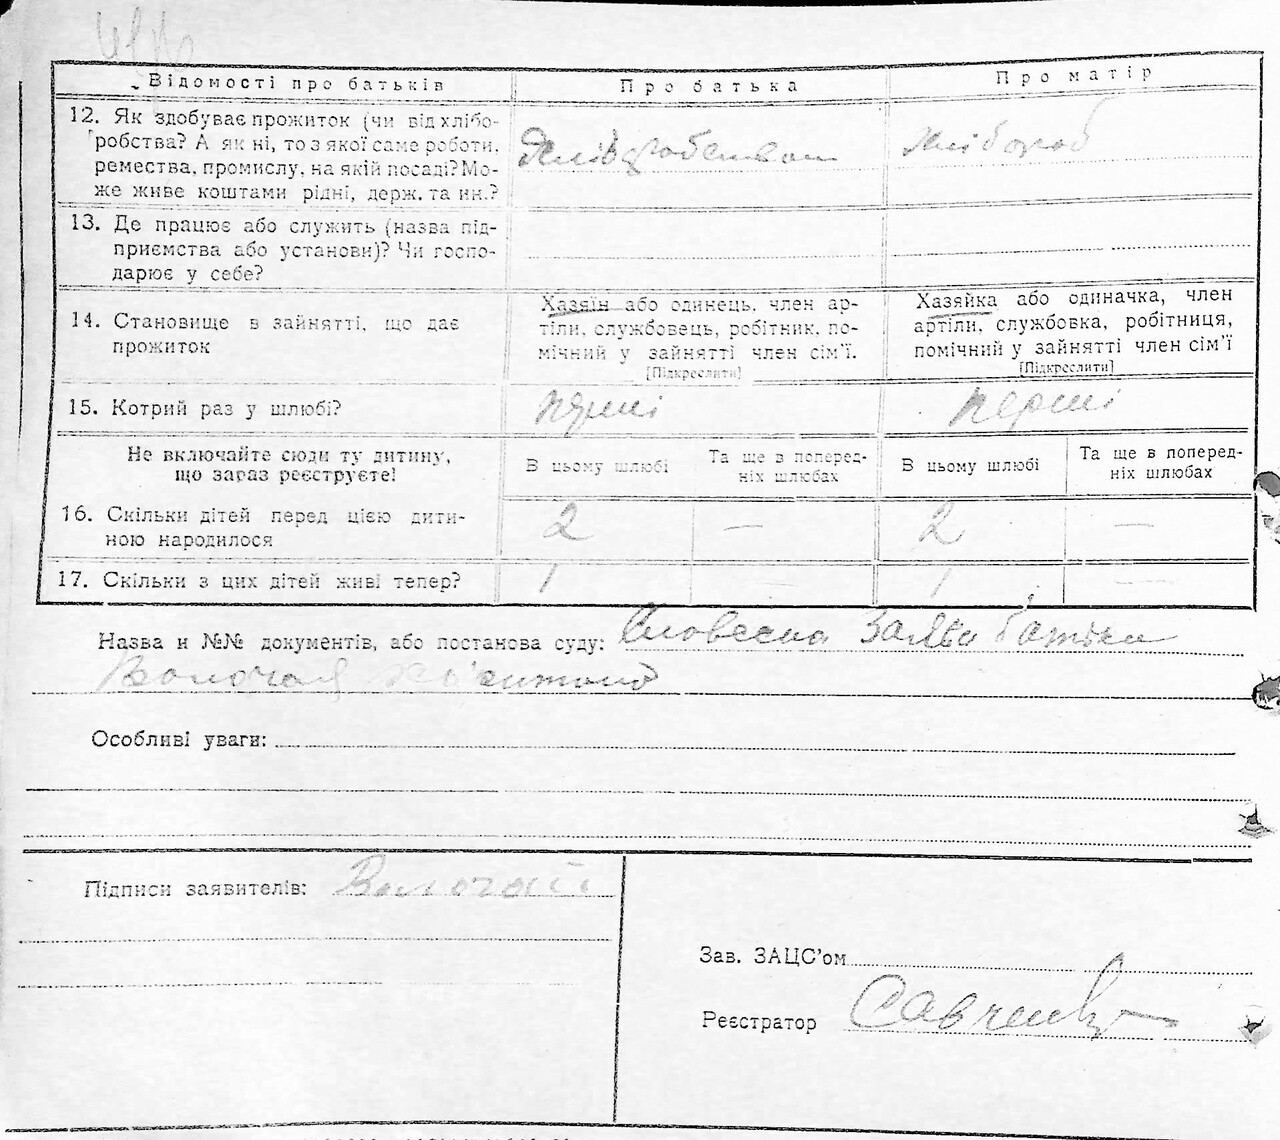 Відомості про батьків Про батька Про матір
12. Як здобуває прожиток (чи від хлібо-
робства? А як ні, то з якої саме роботи,
ремества, промислу, на якій посаді? Мо-
же живе коштами рідні, держ. та ин.?
Хліборобством хлібороб
13. Де працює або служить (назва під-
приємства або установи)? Чи госпо-
дарює у себе?
14. Становище в зайнятті, що дає
прожиток
Хазяїн або одинець, член ар-
тіли, службовець, робітник, по-
мічний у зайнятті член сім'ї.
[Підкреслити]
Хазяйка або одиначка, член
артіли, службовка, робітниця,
помічний у зайнятті член сім'ї
[Підкреслити]
15. Котрий раз у шлюбі? перші перші
Не включайте сюди ту дитину,
що зараз реєструєте!
В цьому шлюбі
Та ще в поперед-
ніх шлюбах
В цьому шлюбі
Та ще в поперед-
ніх шлюбах
16. Скільки дітей перед цією дити-
ною народилося
2 — 2 —
17. Скільки з цих дітей живі тепер? 1 — 1 —
Назва и №№ документів, або постанова суду: Словесна заява батька
Волочая
Особливі уваги:
Підписи заявителів: Волочай
Зав. ЗАЦС'ом
Реєстратор Савченко